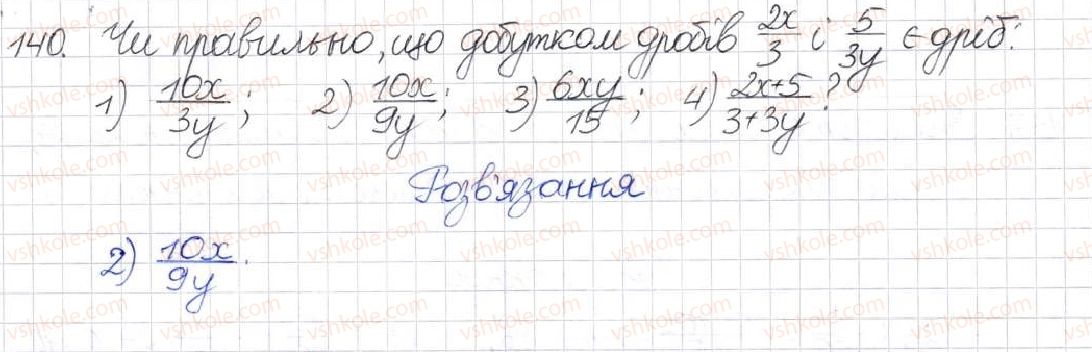 140. Чи правильно, що добутком дробів 2x/3 і 5/3y є дріб:
1) 10x/3y; 2) 10x/9y; 3) 6xy/15; 4) 2x+5/3+3y?
Розв'язання
2) 10x/9y.